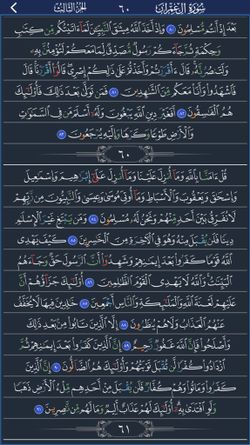 سُورَةُ آلِ عِمْرَان ٦٠ الجُزْءُ الثَّالِث
بَعْدَ إِذْ أَنتُم مُّسْلِمُونَ ٨٠ وَإِذْ أَخَذَ ٱللَّهُ مِيثَٰقَ ٱلنَّبِيِّـۧنَ لَمَآ ءَاتَيْتُكُم مِّن كِتَٰبٍ
وَحِكْمَةٍ ثُمَّ جَآءَكُمْ رَسُولٌ مُّصَدِّقٌ لِّمَا مَعَكُمْ لَتُؤْمِنُنَّ بِهِۦ
وَلَتَنصُرُنَّهُۥ قَالَ ءَأَقْرَرْتُمْ وَأَخَذْتُمْ عَلَىٰ ذَٰلِكُمْ إِصْرِى قَالُوٓا۟ أَقْرَرْنَا قَالَ
فَٱشْهَدُوا۟ وَأَنَا۠ مَعَكُم مِّنَ ٱلشَّٰهِدِينَ ٨١ فَمَن تَوَلَّىٰ بَعْدَ ذَٰلِكَ فَأُو۟لَٰٓئِكَ
هُمُ ٱلْفَٰسِقُونَ ٨٢ أَفَغَيْرَ دِينِ ٱللَّهِ يَبْغُونَ وَلَهُۥٓ أَسْلَمَ مَن فِى ٱلسَّمَٰوَٰتِ
وَٱلْأَرْضِ طَوْعًا وَكَرْهًا وَإِلَيْهِ يُرْجَعُونَ ٨٣
٦٠
قُلْ ءَامَنَّا بِٱللَّهِ وَمَآ أُنزِلَ عَلَيْنَا وَمَآ أُنزِلَ عَلَىٰٓ إِبْرَٰهِيمَ وَإِسْمَٰعِيلَ
وَإِسْحَٰقَ وَيَعْقُوبَ وَٱلْأَسْبَاطِ وَمَآ أُوتِىَ مُوسَىٰ وَعِيسَىٰ وَٱلنَّبِيُّونَ مِن رَّبِّهِمْ
لَا نُفَرِّقُ بَيْنَ أَحَدٍ مِّنْهُمْ وَنَحْنُ لَهُۥ مُسْلِمُونَ ٨٤ وَمَن يَبْتَغِ غَيْرَ ٱلْإِسْلَٰمِ
دِينًا فَلَن يُقْبَلَ مِنْهُ وَهُوَ فِى ٱلْءَاخِرَةِ مِنَ ٱلْخَٰسِرِينَ ٨٥ كَيْفَ يَهْدِى
ٱللَّهُ قَوْمًا كَفَرُوا۟ بَعْدَ إِيمَٰنِهِمْ وَشَهِدُوٓا۟ أَنَّ ٱلرَّسُولَ حَقٌّ وَجَآءَهُمُ
ٱلْبَيِّنَٰتُ وَٱللَّهُ لَا يَهْدِى ٱلْقَوْمَ ٱلظَّٰلِمِينَ ٨٦ أُو۟لَٰٓئِكَ جَزَآؤُهُمْ أَنَّ
عَلَيْهِمْ لَعْنَةَ ٱللَّهِ وَٱلْمَلَٰٓئِكَةِ وَٱلنَّاسِ أَجْمَعِينَ ٨٧ خَٰلِدِينَ فِيهَا لَا يُخَفَّفُ
عَنْهُمُ ٱلْعَذَابُ وَلَا هُمْ يُنظَرُونَ ٨٨ إِلَّا ٱلَّذِينَ تَابُوا۟ مِنۢ بَعْدِ ذَٰلِكَ
وَأَصْلَحُوا۟ فَإِنَّ ٱللَّهَ غَفُورٌ رَّحِيمٌ ٨٩ إِنَّ ٱلَّذِينَ كَفَرُوا۟ بَعْدَ إِيمَٰنِهِمْ ثُمَّ
ٱزْدَادُوا۟ كُفْرًا لَّن تُقْبَلَ تَوْبَتُهُمْ وَأُو۟لَٰٓئِكَ هُمُ ٱلضَّآلُّونَ ٩٠ إِنَّ ٱلَّذِينَ
كَفَرُوا۟ وَمَاتُوا۟ وَهُمْ كُفَّارٌ فَلَن يُقْبَلَ مِنْ أَحَدِهِم مِّلْءُ ٱلْأَرْضِ ذَهَبًا
وَلَوِ ٱفْتَدَىٰ بِهِۦٓ أُو۟لَٰٓئِكَ لَهُمْ عَذَابٌ أَلِيمٌ وَمَا لَهُم مِّن نَّٰصِرِينَ ٩١
٦١